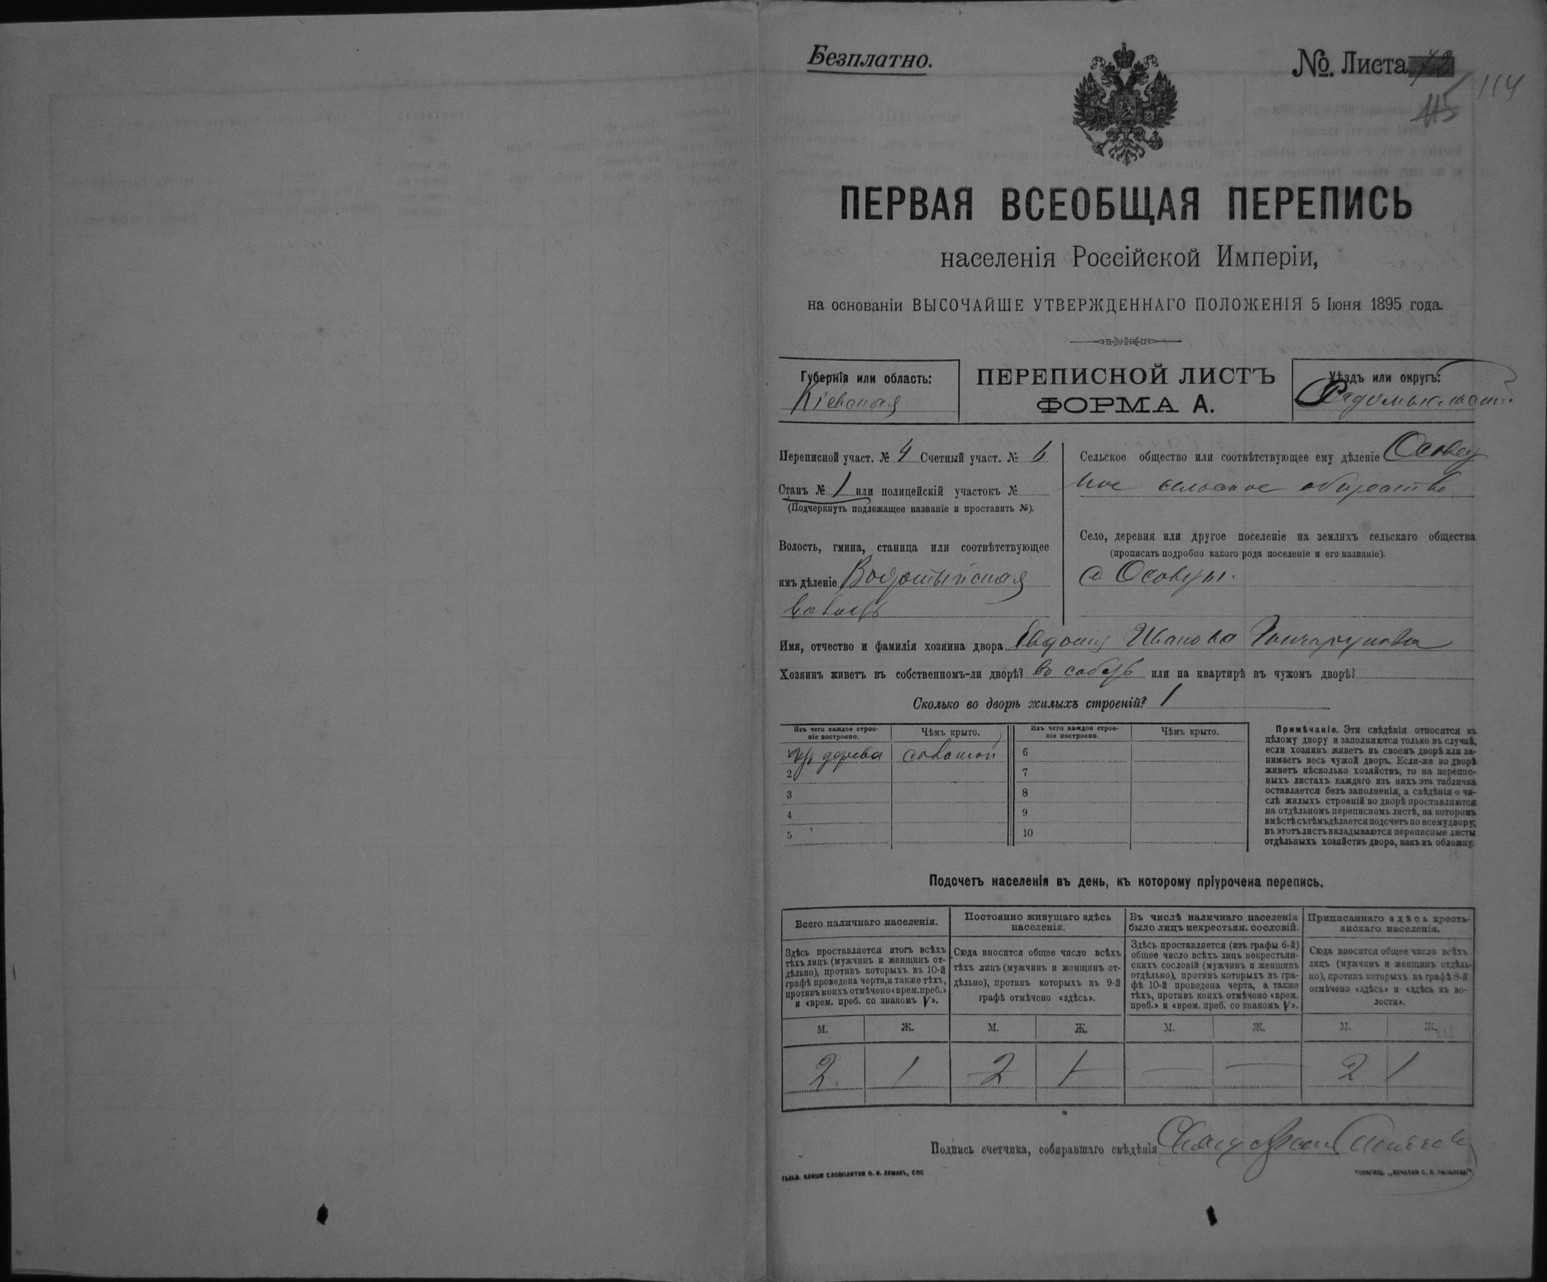 Безплатно.
№. Листа
115 114
ПЕРВАЯ ВСЕОБЩАЯ ПЕРЕПИСЬ
населенія Россійской Имперіи,
на основаніи ВЫСОЧАЙШЕ УТВЕРЖДЕННАГО ПОЛОЖЕНІЯ 5 Іюня 1895 года.
Губернія или область:
Кіевская
ПЕРЕПИСНОЙ ЛИСТЪ
ФОРМА А.
Уѣздъ или округъ:
Радомысльскій
Переписной участ. № 4 Счетный участ. № 6
Станъ № 1 или полицейскій участокъ №
(Подчеркнуть подлежащее названіе и проставить №).
Волость, гмина, станица или соотвѣтствующее
имъ дѣленіе Водотыйская
волость
Сельское общество или соотвѣтствующее ему дѣленіе Осовец
кое сельское общество
Село, деревня или другое поселеніе на земляхъ сельскаго общества
(прописать подробно какого рода поселеніе и его названіе).
с Осовцы.
Имя, отчество и фамилія хозяина двора Иванова
Хозяинъ живетъ въ собственномъ-ли дворѣ? въ или на квартирѣ въ чужомъ дворѣ?
Сколько во дворѣ жилыхъ строеній? 1
Изъ чего каждое строе-
ніе построено.
Чѣмъ крыто.
Изъ чего каждое строе-
ніе построено.
Чѣмъ крыто.
изъ дерева соломой 6
2 7
3 8
4 9
5 10
Примѣчаніе. Эти свѣдѣнія относятся къ
цѣлому двору и заполняются только въ случаѣ,
если хозяинъ живетъ въ своемъ дворѣ или за-
нимаетъ весь чужой дворъ. Если-же во дворѣ
живетъ нѣсколько хозяйствъ, то на перепис-
ныхъ листахъ каждаго изъ нихъ эта табличка
оставляется безъ заполненія, а свѣдѣнія о чи-
слѣ жилыхъ строеній во дворѣ проставляются
на отдѣльномъ переписномъ листѣ, на которомъ
вмѣстѣ съ тѣмъ дѣлается подсчетъ по всему двору;
въ этотъ листъ вкладываются переписные листы
отдѣльныхъ хозяйствъ двора, какъ въ обложку.
Подсчетъ населенія въ день, къ которому пріурочена перепись.
Всего наличнаго населенія.
Здѣсь проставляется итогъ всѣхъ
тѣхъ лицъ (мужчинъ и женщинъ от-
дѣльно), противъ которыхъ въ 10-й
графѣ проведена черта, а также тѣхъ,
противъ коихъ отмѣчено «врем. преб.»
и «врем. преб. со знакомъ V».
Постоянно живущаго здѣсь
населенія.
Сюда вносится общее число всѣхъ
тѣхъ лицъ (мужчинъ и женщинъ от-
дѣльно), противъ которыхъ въ 9-й
графѣ отмѣчено «здѣсь».
Въ числѣ наличнаго населенія
было лицъ некрестьян. сословій.
Здѣсь проставляется (изъ графы 6-й)
общее число всѣхъ лицъ некрестьян-
скихъ сословій (мужчинъ и женщинъ
отдѣльно), противъ которыхъ въ гра-
фѣ 10-й проведена черта, а также
тѣхъ, противъ коихъ отмѣчено «врем.
преб.» и «врем. преб. со знакомъ V».
Приписаннаго здѣсь кресть-
янскаго населенія.
Сюда вносится общее число всѣхъ
лицъ (мужчинъ и женщинъ отдѣль-
но), противъ которыхъ въ графѣ 8-й
отмѣчено «здѣсь» и «здѣсь въ во-
лости».
М. Ж. М. Ж. М. Ж. М. Ж.
2 1 2 1 — — 2 1
Подпись счетчика, собиравшаго свѣдѣнія